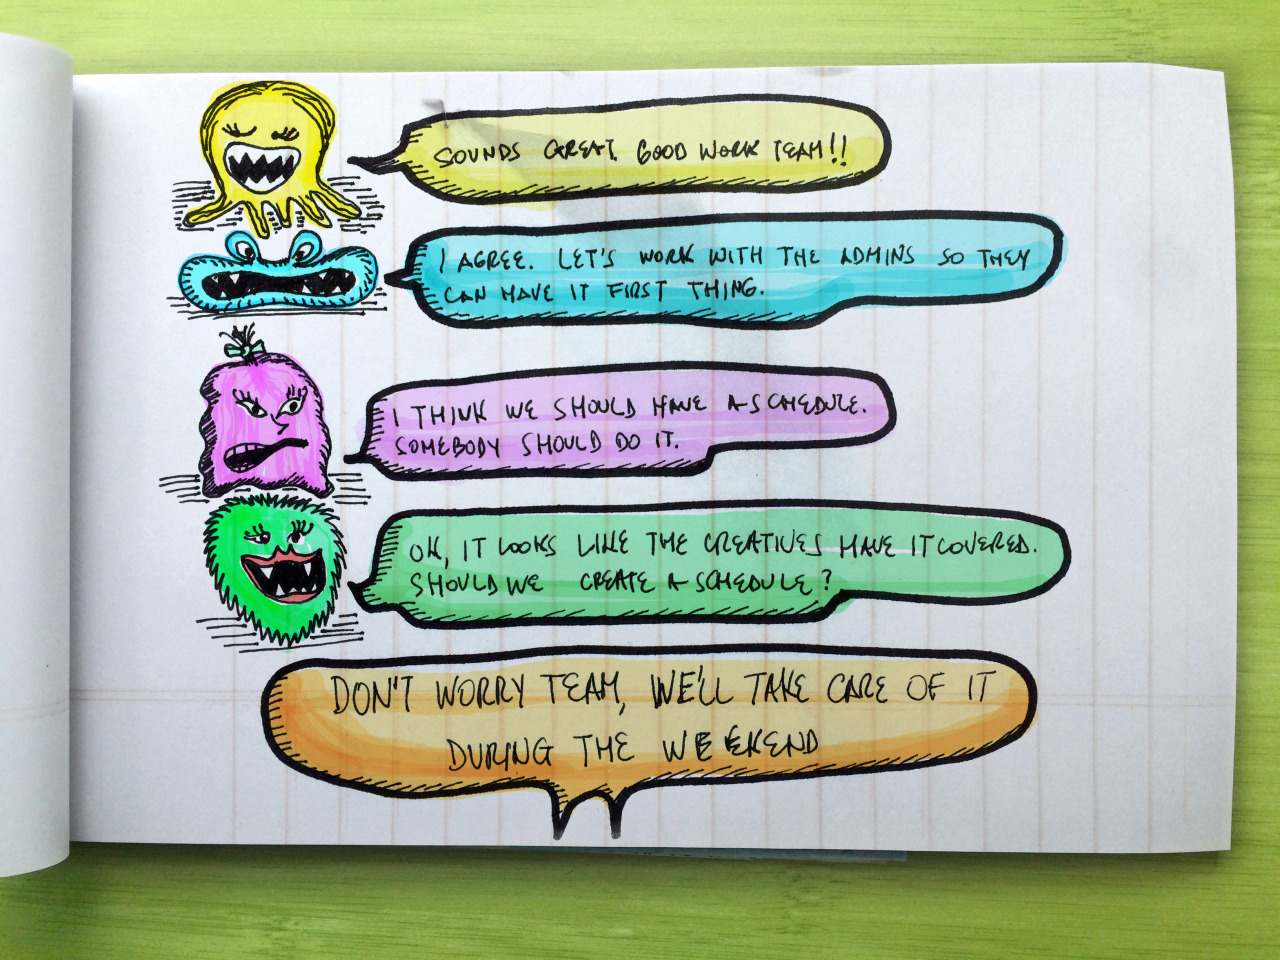 SOUNDS GREAT. GOOD WORK TEAM!!
I AGREE. LET'S WORK WITH THE ADMINS SO THEY
CAN HAVE IT FIRST THING.
I THINK WE SHOULD HAVE A SCHEDULE.
SOMEBODY SHOULD DO IT.
OK, IT LOOKS LIKE THE CREATIVES HAVE IT COVERED.
SHOULD WE CREATE A SCHEDULE?
DON'T WORRY TEAM, WE'LL TAKE CARE OF IT
DURING THE WEEKEND